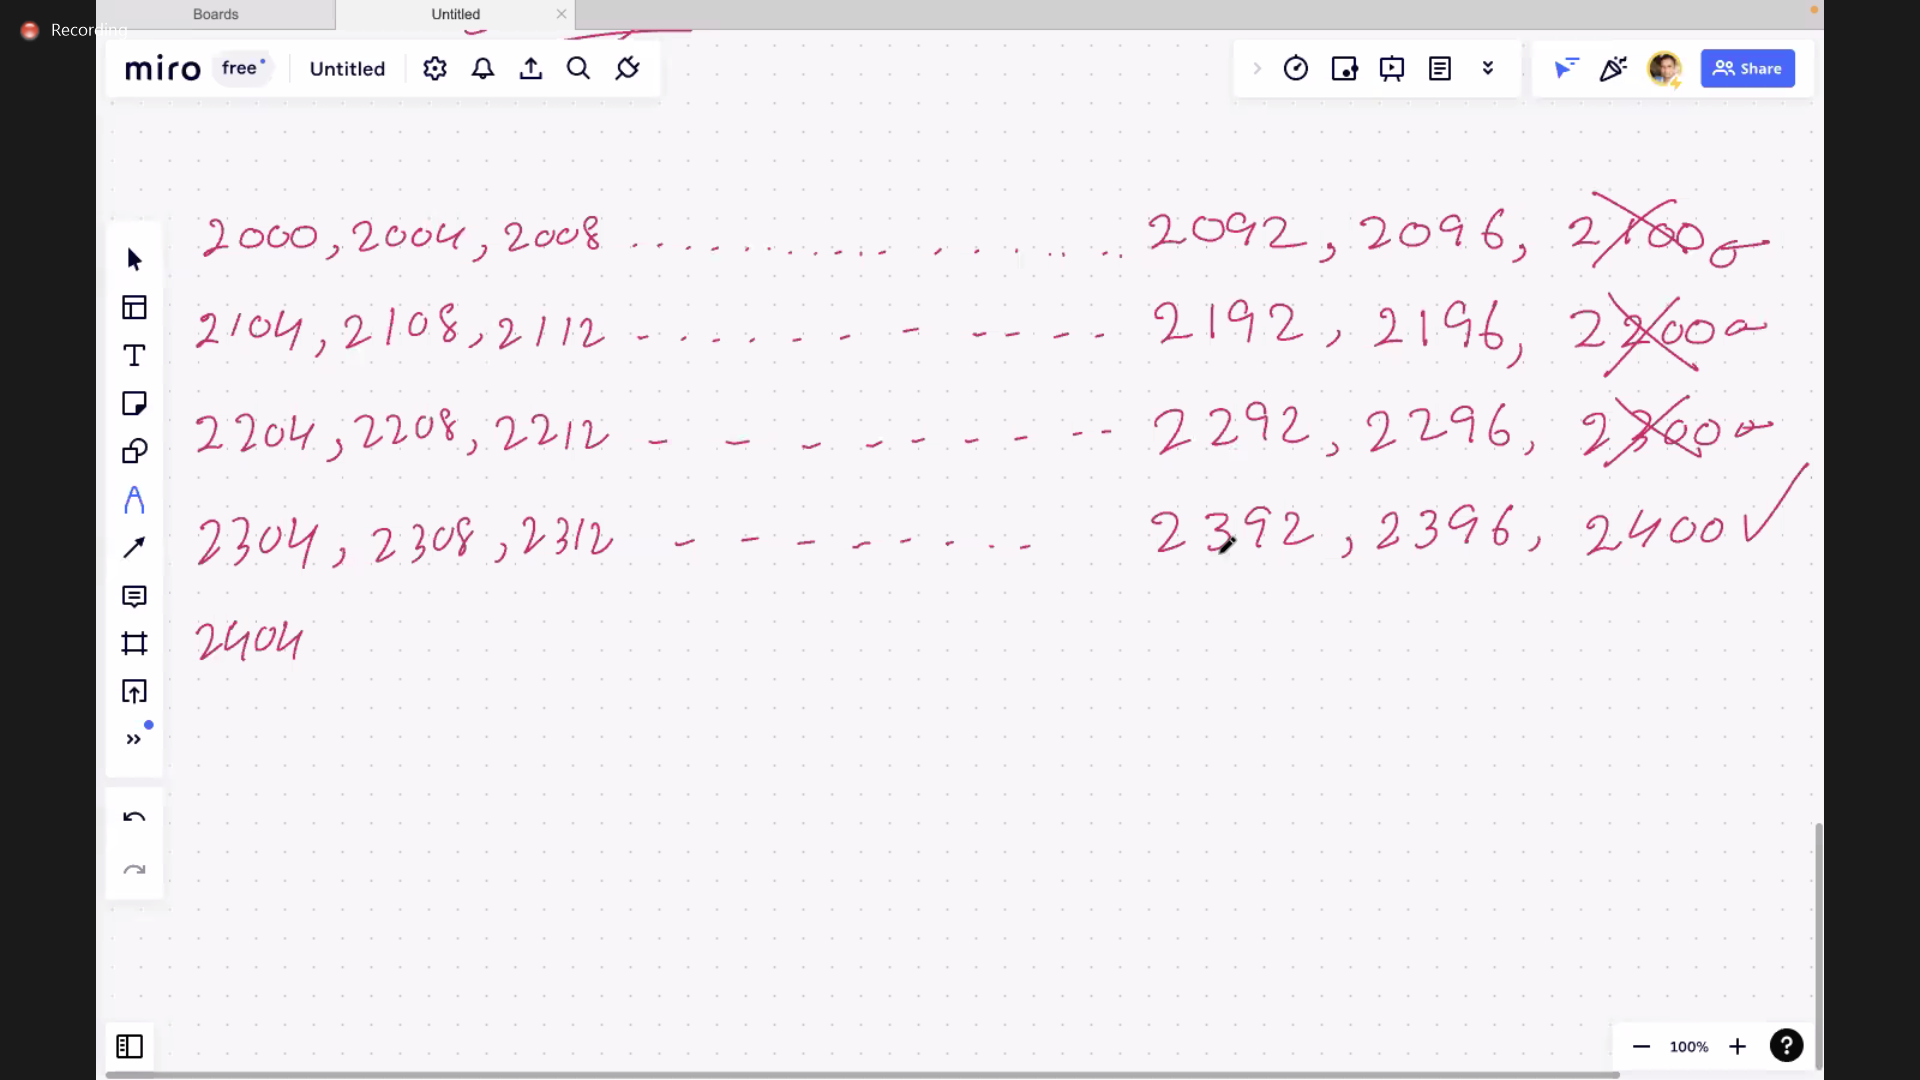 Boards
Untitled
Recording
miro free Untitled
Share
2000, 2004, 2008 .................. 2092, 2096, 2100
2104, 2108, 2112 - . . . . - - - - - - - 2192, 2196, 2200
2204, 2208, 2212 - - - - - - - - - 2292, 2296, 2300
2304, 2308, 2312 - - - - - - . . 2392, 2396, 2400 ✓
2404
100%